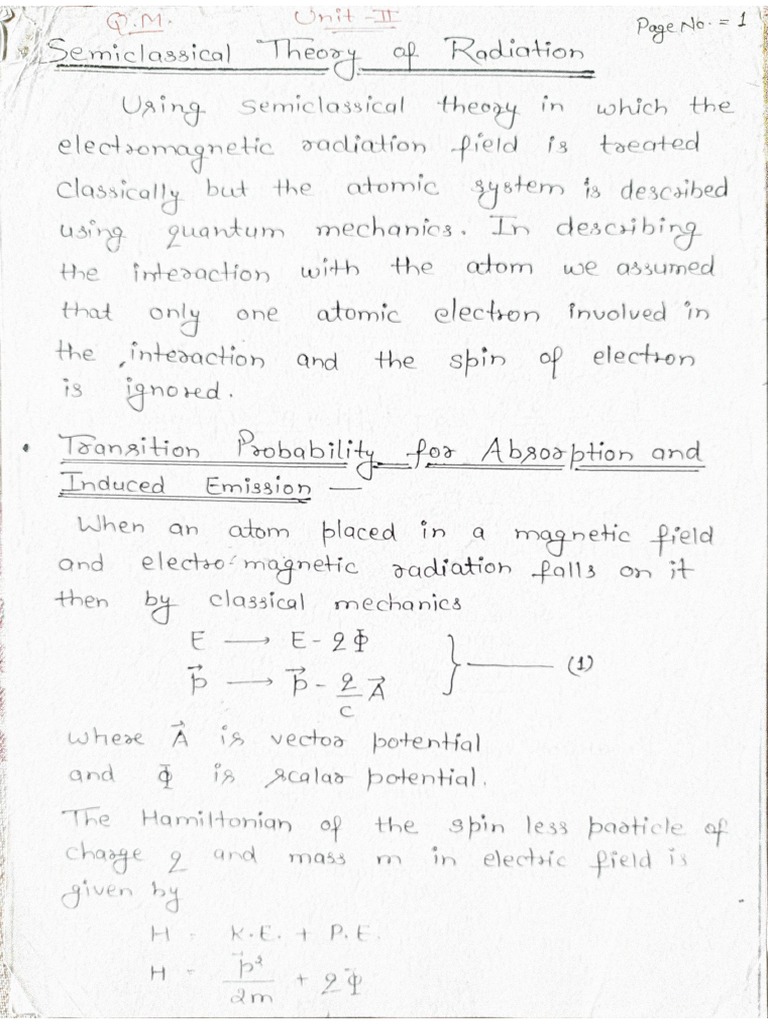 Q.M. Unit-II Page No. = 1
Semiclassical Theory of Radiation
Using semiclassical theory in which the
electromagnetic radiation field is treated
classically but the atomic system is described
using quantum mechanics. In describing
the interaction with the atom we assumed
that only one atomic electron involved in
the interaction and the spin of electron
is ignored.
• Transition Probability for Absorption and
Induced Emission —
When an atom placed in a magnetic field
and electro-magnetic radiation falls on it
then by classical mechanics
E ⟶ E - qΦ
p⃗ ⟶ p⃗ - q/c A⃗ } ——— (1)
where A⃗ is vector potential
and Φ is scalar potential.
The Hamiltonian of the spin less particle of
charge q and mass m in electric field is
given by
H = K.E. + P.E.
H = p⃗²/2m + qΦ